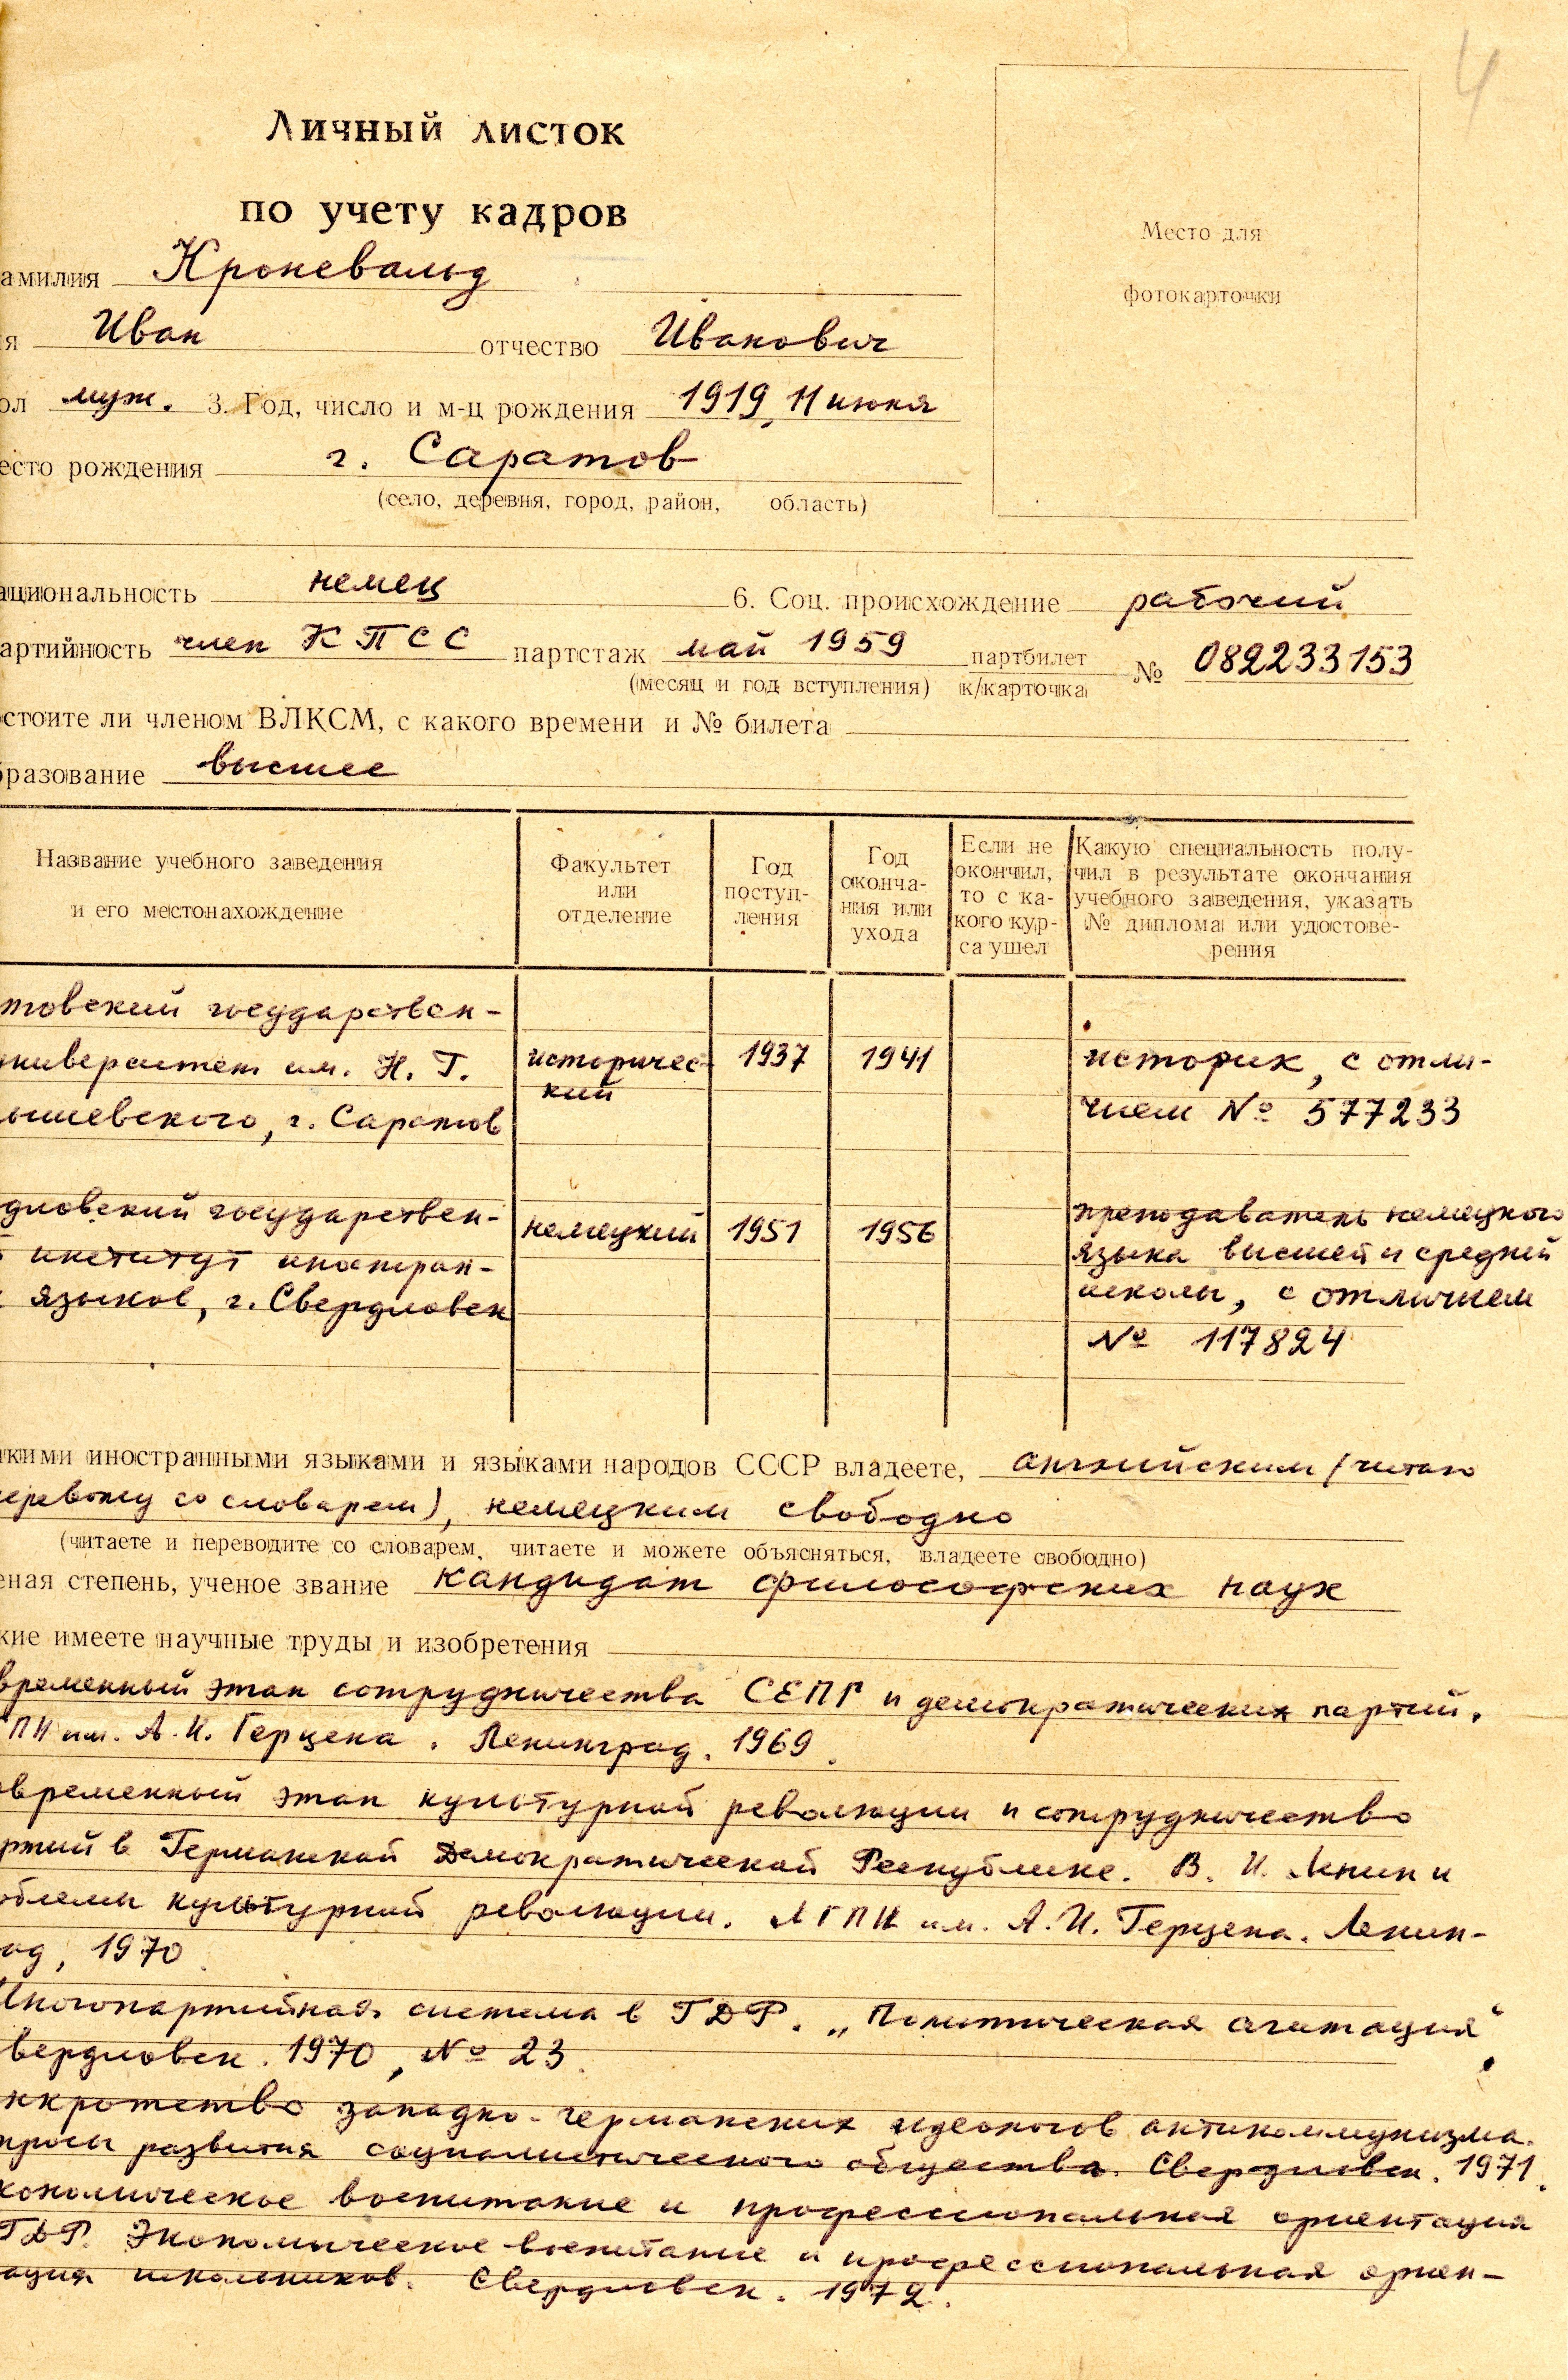 4
Личный листок
по учету кадров
Место для
фотокарточки
амилия Кроневальд
я Иван отчество Иванович
ол муж. 3. Год, число и м-ц рождения 1919, 11 июня
есто рождения г. Саратов
(село, деревня, город, район, область)
ациональность немец 6. Соц. происхождение рабочий
артийность член КПСС партстаж май 1959 партбилет № 082233153
(месяц и год вступления) к/карточка
стоите ли членом ВЛКСМ, с какого времени и № билета
бразование высшее
Название учебного заведения
и его местонахождение
Факультет
или
отделение
Год
поступ-
ления
Год
оконча-
ния или
ухода
Если не
окончил,
то с ка-
кого кур-
са ушел
Какую специальность полу-
чил в результате окончания
учебного заведения, указать
№ диплома или удостове-
рения
товский государствен-
ниверситет им. Н. Г.
ышевского, г. Саратов
историчес-
кий
1937
1941
историк, с отли-
чием № 577233
дловский государствен-
институт иностран-
языков, г. Свердловск
немецкий
1951
1956
преподаватель немецкого
языка высшей и средней
школы, с отличием
№ 117824
кими иностранными языками и языками народов СССР владеете, английским (читаю
еревожу со словарем), немецким свободно
(читаете и переводите со словарем, читаете и можете объясняться, владеете свободно)
еная степень, ученое звание кандидат философских наук
кие имеете научные труды и изобретения
временный этап сотрудничества СЕПГ и демократических партий.
ПИ им. А. И. Герцена. Ленинград. 1969.
овременный этап культурной революции и сотрудничество
ртий в Германской Демократической Республике. В. И. Ленин и
облемы культурной революции. ЛГПИ им. А. И. Герцена. Ленин-
ад, 1970.
Многопартийная система в ГДР. „Политическая агитация“
вердловск. 1970, № 23.
нкротство западно-германских идеологов антикоммунизма.
просы развития социалистического общества. Свердловск. 1971.
кономическое воспитание и профессиональная ориентация
ГДР. Экономическое воспитание и профессиональная ориен-
ация школьников. Свердловск. 1972.